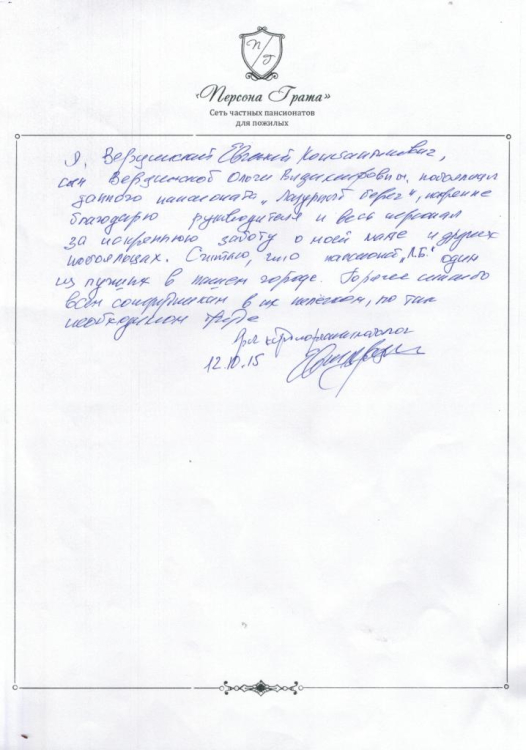 П
Г
«Персона Грата»
Сеть частных пансионатов
для пожилых
Я, Верзинский Евгений Константинович,
сын Верзинской Ольги Владимировны,
данного пансионата „Лазурный берег“, искренне
благодарю руководителя и весь персонал
за искреннюю заботу о моей маме и других
постояльцах. Считаю, что пансионат „Л.Б.“ один
из лучших в нашем городе. Горячее спасибо
всем сотрудникам в их нелёгком, но так
необходимом труде
12.10.15